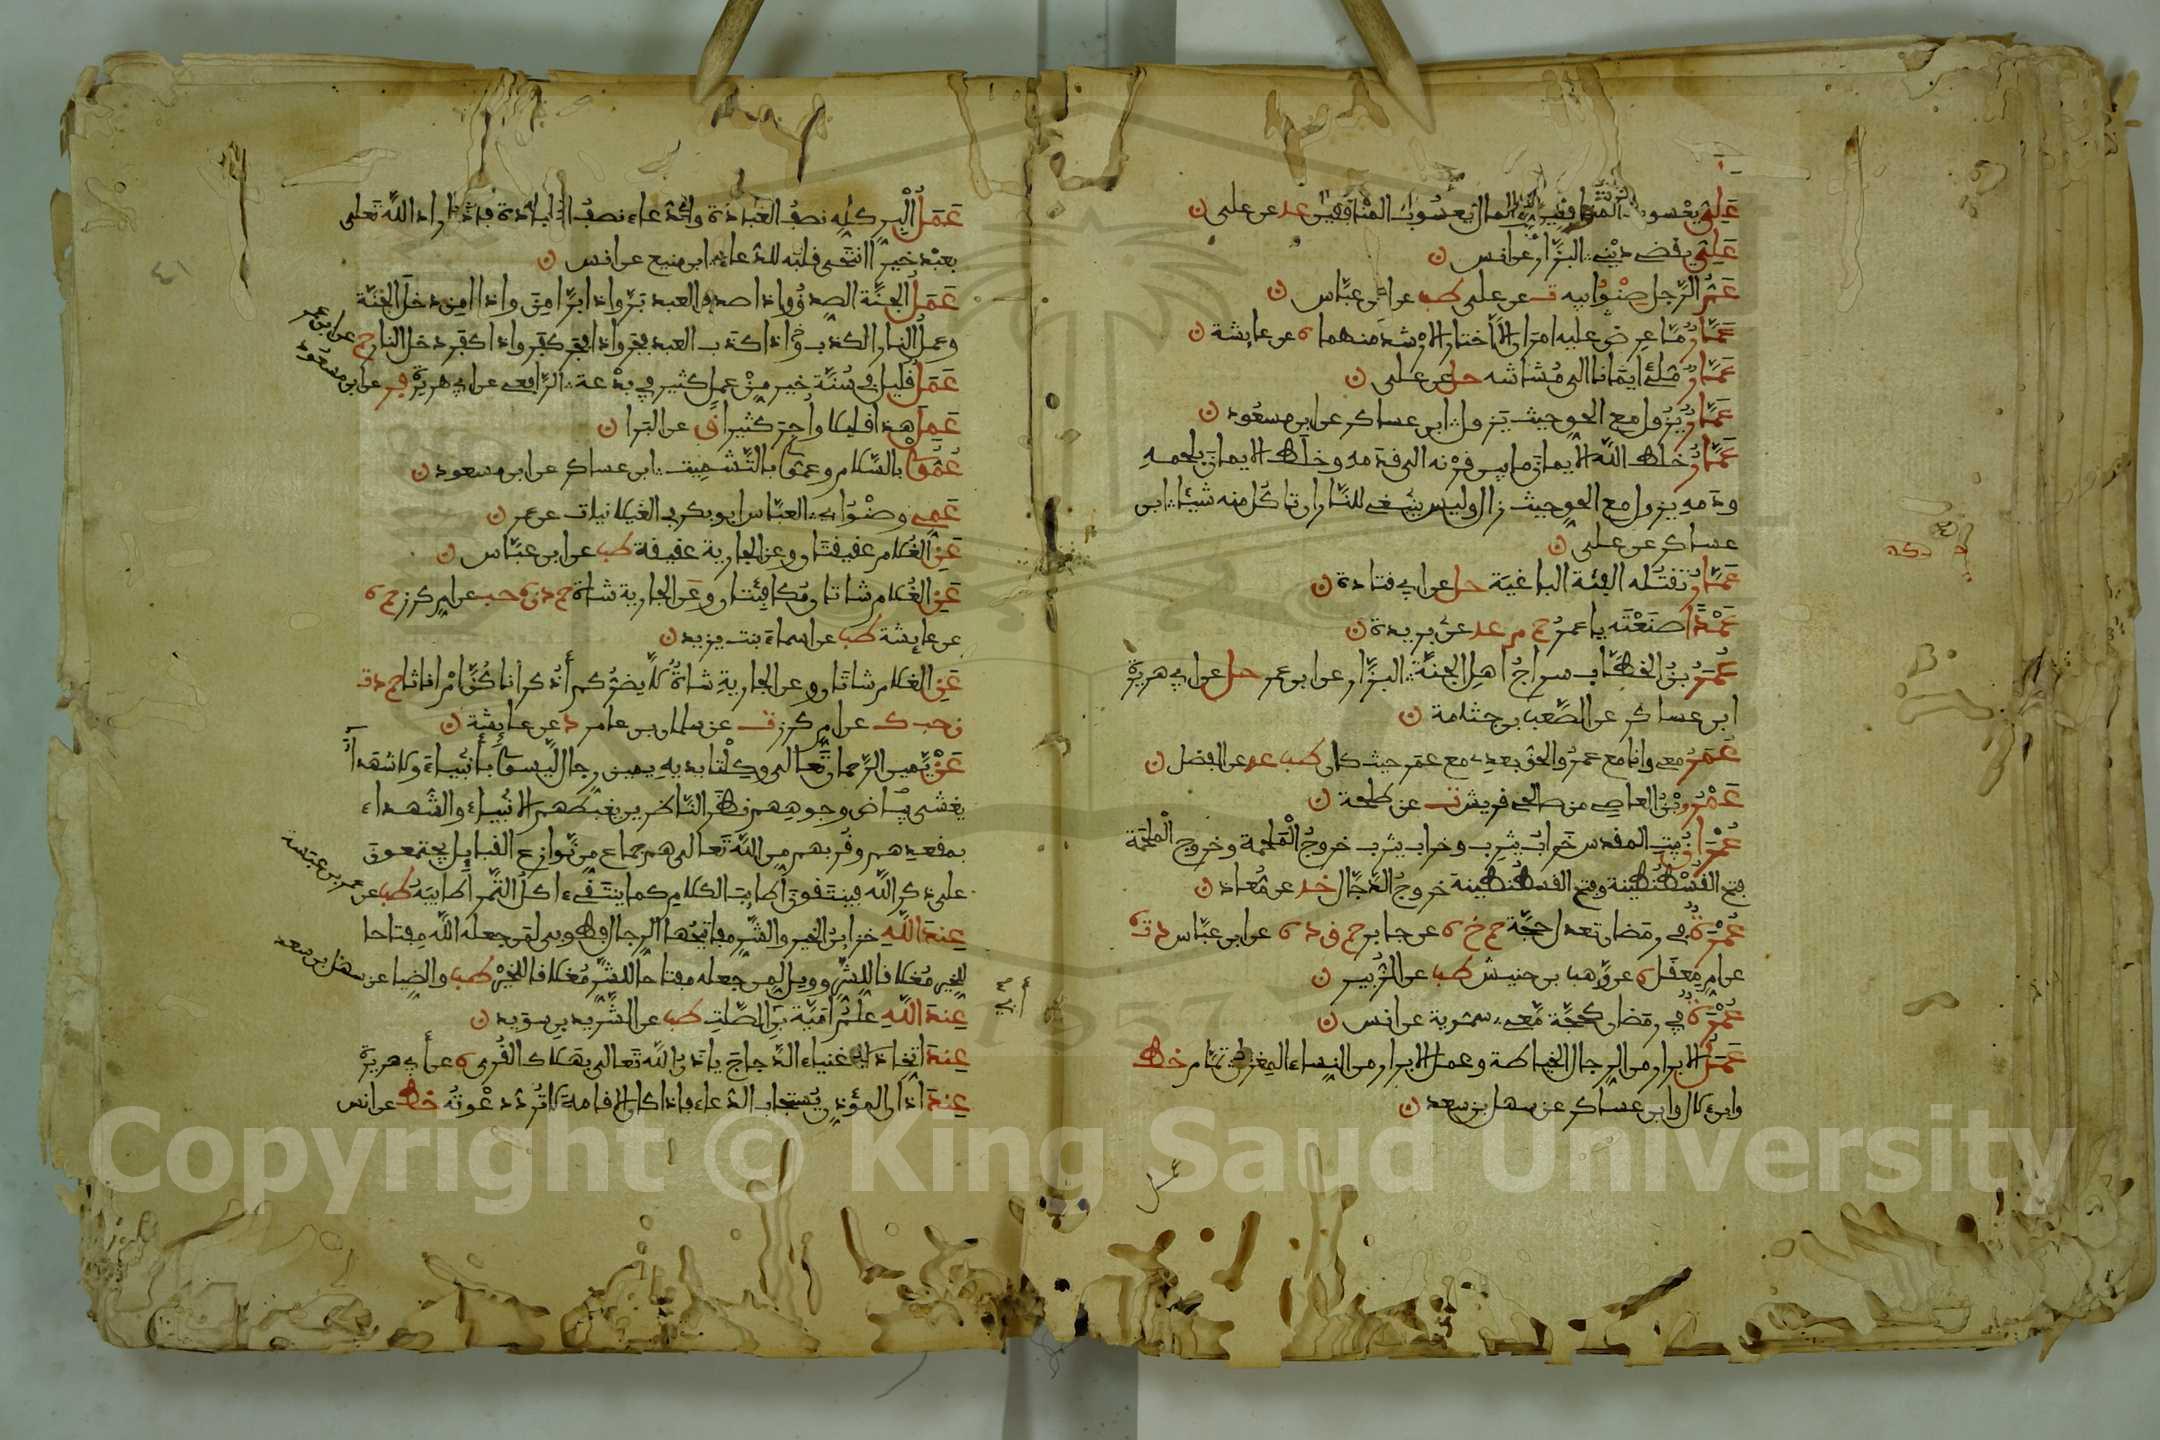 علي يعسوب المؤمنين والمال يعسوب المنافقين عد عن علي ن
علي يقضي ديني البزار عن انس ن
عم الرجل صنو ابيه ت عن علي طب عن ابن عباس ن
عمار ما عرض عليه امران الا اختار الارشد منهما ه عن عايشة ن
عمار ملئ ايمانا الى مشاشه حل عن علي ن
عمار يزول مع الحق حيث يزول ابن عساكر عن ابن مسعود ن
عمار خلط الله الايمان ما بين قرنه الى قدمه وخلط الايمان بلحمه
ودمه يزول مع الحق حيث زال وليس ينبغي للنار ان تاكل منه شيئا ابن
عساكر عن علي ن
عمار تقتله الفئة الباغية حل عن ابي قتادة ن
عمدا صنعته يا عمر حم م عد عن بريدة ن
عمر بن الخطاب سراج اهل الجنة البزار عن ابن عمر حل عن ابي هريرة
ابن عساكر عن الصعب بن جثامة ن
عمر معي وانا مع عمر والحق بعدي مع عمر حيث كان طب عد عن الفضل ن
عمرو بن العاصي من صالحي قريش ت عن طلحة ن
عمران بيت المقدس خراب يثرب وخراب يثرب خروج الملحمة وخروج الملحمة
فتح القسطنطينة وفتح القسطنطينة خروج الدجال حم د عن معاذ ن
عمرة في رمضان تعدل حجة حم خ ه عن جابر حم ق د ه عن ابن عباس د ت ه
عن ام معقل ه عن وهب بن خنبش طب عن الزبير ن
عمرة في رمضان كحجة معي سموية عن انس ن
عمل الابرار من الرجال الخياطة وعمل الابرار من النساء المغزل تمام خط
وابن لال وابن عساكر عن سهل بن سعد ن
عمل البر كله نصف العبادة والدعاء نصف العبادة فاذا اراد الله تعلى
بعبد خيرا انتحى قلبه للدعاء ابن منيع عن انس ن
عمل الجنة الصدق واذا صدق العبد بر واذا بر امن واذا امن دخل الجنة
وعمل النار الكذب واذا كذب العبد فجر واذا فجر كفر واذا كفر دخل النار حم عن ابن عمر
عمل قليل في سنة خير من عمل كثير في بدعة الرافعي عن ابي هريرة فر عن ابن مسعود
عمل هذا قليلا واجر كثيرا ق عن البرا ن
عموا بالسلام وعموا بالتشميت ابن عساكر عن ابن مسعود ن
عمي وصنو ابي العباس ابو بكر في الغيلانيات عن عمر ن
عن الغلام عقيقتان وعن الجارية عقيقة طب عن ابن عباس ن
عن الغلام شاتان مكافئتان وعن الجارية شاة حم د ن ه حب عن ام كرز حم ه
عن عايشة طب عن اسماء بنت يزيد ن
عن الغلام شاتان وعن الجارية شاة لا يضركم أذكرانا كن ام اناثا حم د ت
ن حب ك عن ام كرز ت عن سلمان بن عامر د عن عايشة ن
عن يمين الرحمان تعالى وكلتا يديه يمين رجال ليسوا بأنبياء ولا شهداء
يغشى بياض وجوههم نظر الناظرين يغبطهم الانبياء والشهداء
بمقعدهم وقربهم من الله تعالى هم جماع من نوازع القبايل يجتمعون
على ذكر الله فينتقون اطايب الكلام كما ينتقي اكل التمر اطايبه طب عن عمرو بن عبسة
عند الله خزاين الخير والشر مفاتيحها الرجال فطوبى لمن جعله الله مفتاحا
للخير مغلاقا للشر وويل لمن جعله مفتاحا للشر مغلاقا للخير طب والضيا عن سهل بن سعد
عند الله علم امية بن ابي الصلت طب عن الشريد بن سويد ن
عند اتخاذ الاغنياء الدجاج ياذن الله تعالى بهلاك القرى ه عن أبي هريرة
عند اذان المؤذن يستجاب الدعاء فاذا كان الاقامة لا ترد دعوته خط عن انس
٤١